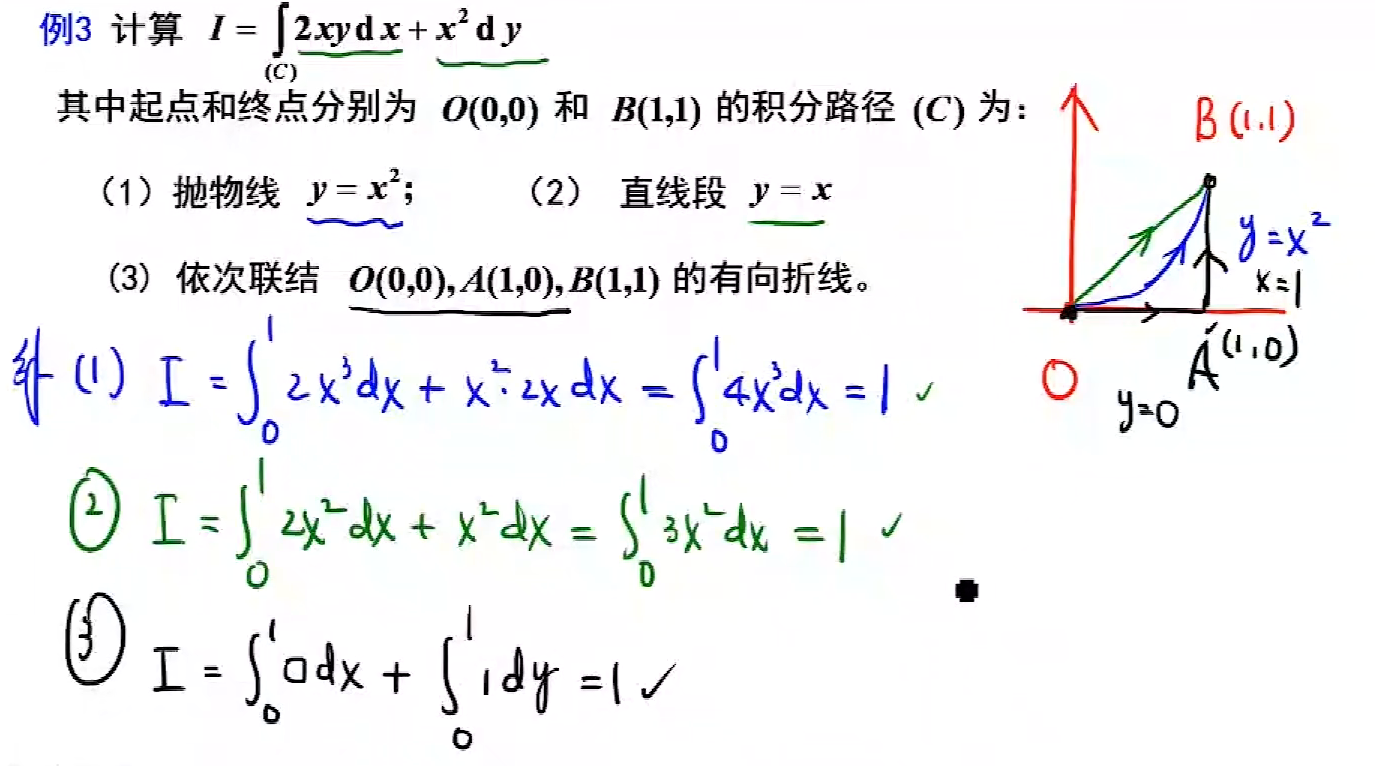 例3 计算 I = ∫(C) 2xydx + x² dy
其中起点和终点分别为 O(0,0) 和 B(1,1) 的积分路径 (C) 为：
（1）抛物线 y = x²; （2） 直线段 y = x
（3）依次联结 O(0,0), A(1,0), B(1,1) 的有向折线。
B (1,1)
y=x²
x=1
A (1,0)
O
y=0
解 (1) I = ∫₀¹ 2x³dx + x²·2x dx = ∫₀¹ 4x³dx = 1 ✓
② I = ∫₀¹ 2x²dx + x²dx = ∫₀¹ 3x²dx = 1 ✓
③ I = ∫₀¹ 0dx + ∫₀¹ 1dy = 1 ✓